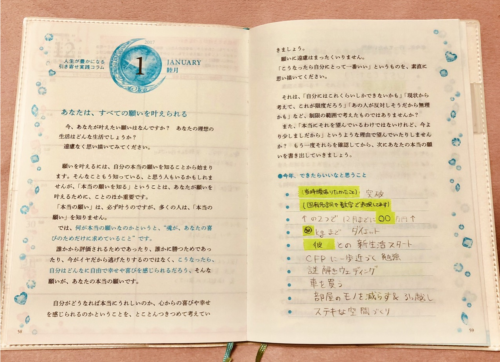 人生が豊かになる
引き寄せ実践コラム
1
JANUARY
睦月
あなたは、すべての願いを叶えられる
今、あなたが叶えたい願いはなんですか？ あなたの理想の
生活はどんな生活でしょうか？
遠慮なく思い描いてみてください。
願いを叶えるには、自分の本当の願いを知ることから始まり
ます。そんなこともう知っている、と思う人もいるかもしれませ
んが、「本当の願いを知る」ということは、あなたが願いを
叶えるために、ことのほか重要です。
「本当の願い」は、必ず叶うのですが、多くの人は、「本当の
願い」を知りません。
では、何が本当の願いなのかというと、“魂が、あなたの喜
びのためだけに求めていること”です。
誰かから評価されるためであったり、誰かに勝つためであった
り、今がイヤだから逃げたりするのではなく、こうなったら、
自分はどんなに自由で幸せや喜びを感じられるだろう。そんな
願いが、あなたの本当の願いです。
自分がどうなれば本当にうれしいのか、心からの喜びや幸せ
を感じられるのかということを、とことんつきつめて考えてい
きましょう。
願いに遠慮はまったくいりません。
「こうなったら自分にとって一番いい」というものを、素直に
思い描いてください。
それは、「自分にはこれくらいしかできないかも」、「現状から
考えて、これが限度だろう」「あの人が反対しそうだから無理
かも」など、制限の範囲で考えたものではありませんか？
また、「本当にそれを望んでいるわけではないけれど、今よ
り少しましだから」というような理由で望んでいたりしません
か？ もう一度それらを確認してから、次にあなたの本当の願
いを書き出していきましょう。
●今年、できたらいいなと思うこと
突破
12月までに
kgまで ダイエット
との 新生活スタート
CFPに一歩近づく 勉強
謎解きウェディング
車を買う
部屋のモノを減らす
ステキな空間づくり